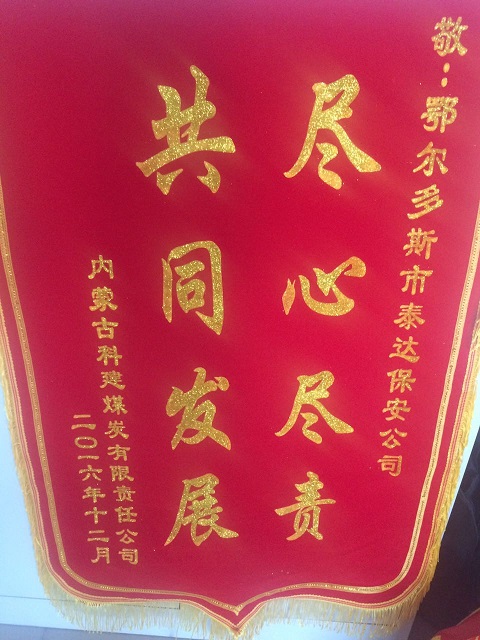 敬：鄂尔多斯市泰达保安公司
尽心尽责
共同发展
内蒙古科建煤炭有限责任公司
二〇一六年十二月